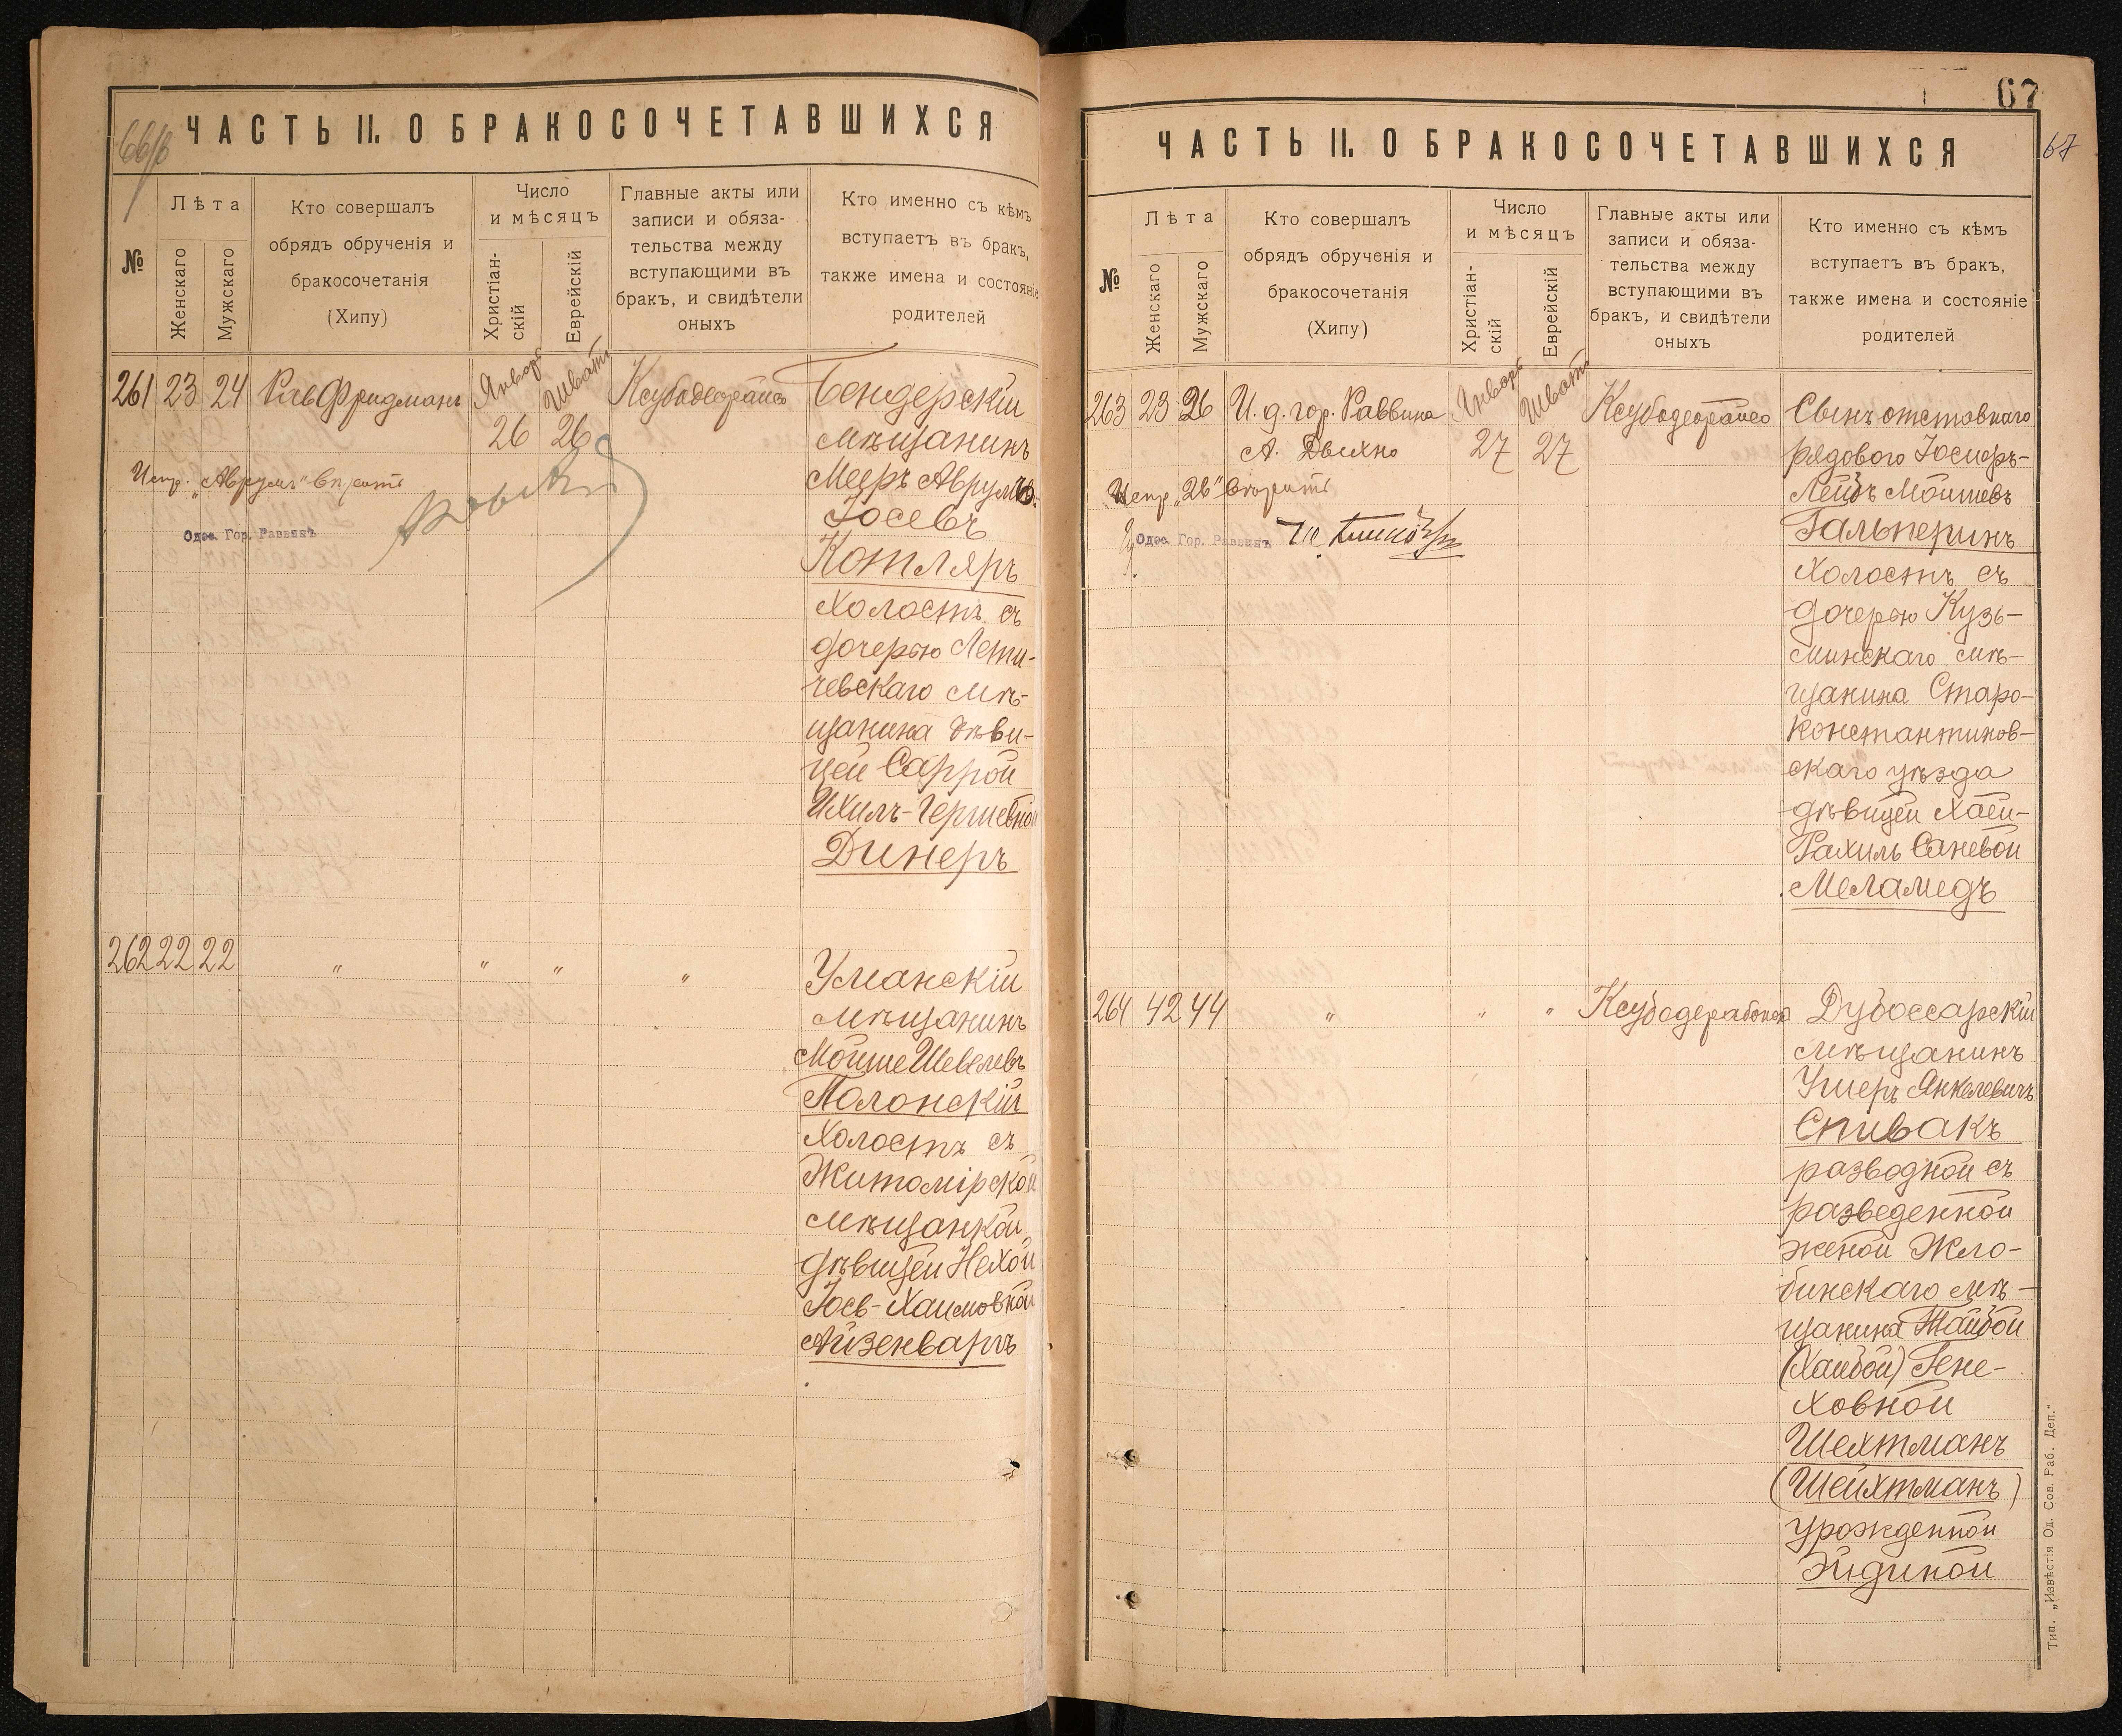 ЧАСТЬ II. О БРАКОСОЧЕТАВШИХСЯ
66/б
№
Лѣта
Женскаго
Мужскаго
Кто совершалъ
обрядъ обрученія и
бракосочетанія
(Хипу)
Число
и мѣсяцъ
Христіан-
скій
Еврейскій
Главные акты или
записи и обяза-
тельства между
вступающими въ
бракъ, и свидѣтели
оныхъ
Кто именно съ кѣмъ
вступаетъ въ бракъ,
также имена и состояніе
родителей
261 23 24 Рав Фридманъ Январь 26 Шватъ 26
Бендерскій
мѣщанинъ
Мееръ Аврумъ-
Іосевъ
Котляръ
холостъ съ
дочерью Лети-
чевскаго мѣ-
щанина дѣви-
цей Саррой
Ихилъ-Гершевной
Динеръ
Испр. „Аврумъ“
Одес. Гор. Раввинъ
262 22 22 " " " "
Уманскій
мѣщанинъ
Мойше Шевелевъ
Полонскій
холостъ съ
Житомірской
мѣщанкой,
дѣвицей Нехой
Іосъ-Хаимовной
Айзенваргъ
67
ЧАСТЬ II. О БРАКОСОЧЕТАВШИХСЯ
67
№
Лѣта
Женскаго
Мужскаго
Кто совершалъ
обрядъ обрученія и
бракосочетанія
(Хипу)
Число
и мѣсяцъ
Христіан-
скій
Еврейскій
Главные акты или
записи и обяза-
тельства между
вступающими въ
бракъ, и свидѣтели
оныхъ
Кто именно съ кѣмъ
вступаетъ въ бракъ,
также имена и состояніе
родителей
263 23 26 И. д. гор. Раввина
А. Двихно
Январь 27 Шватъ 27
Сынъ отставнаго
рядового Іосифъ-
Лейбъ Мошевъ
Гальперинъ
холостъ съ
дочерью Кузь-
минскаго мѣ-
щанина Старо-
константинов-
скаго уѣзда
дѣвицей Хаей-
Рахиль Саневой
Меламедъ
Испр. „26“
Одес. Гор. Раввинъ
264 42 44 " " "
Дубоссарскій
мѣщанинъ
Ушеръ Янкелевичъ
Спивакъ
разводной съ
разведенной
женой Жло-
бинскаго мѣ-
щанина Тайбой
(Хайбой) Гене-
ховной
Шехтманъ
(Шейхтманъ)
урожденной
Эйдиной
Тип. „Извѣстія Од. Сов. Раб. Деп.“